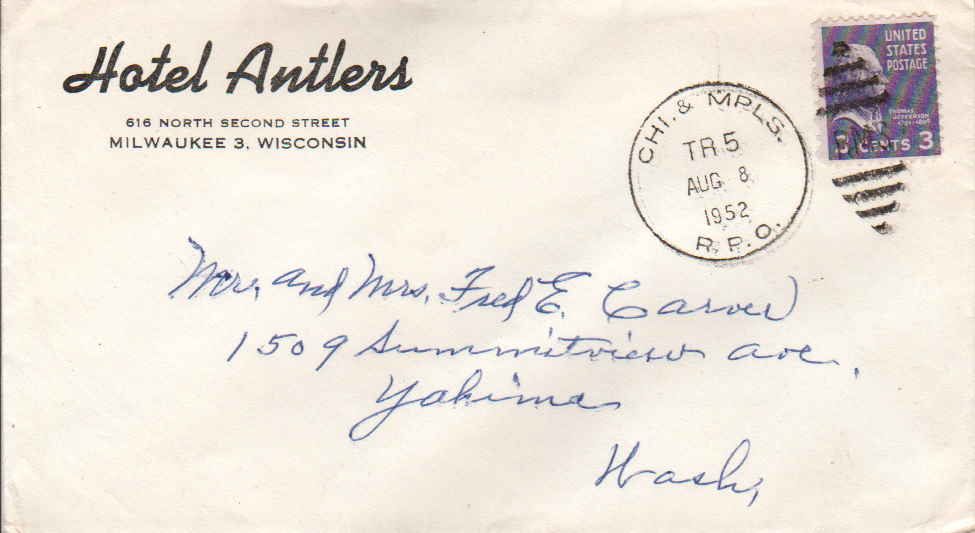 Hotel Antlers
616 NORTH SECOND STREET
MILWAUKEE 3, WISCONSIN
CHI. & MPLS.
TR 5
AUG 8
1952
R.P.O.
UNITED
STATES
POSTAGE
THOMAS
JEFFERSON
3 CENTS 3
RMS
Mr. and Mrs. Fred E. Carver
1509 Summitview Ave.
Yakima
Wash,